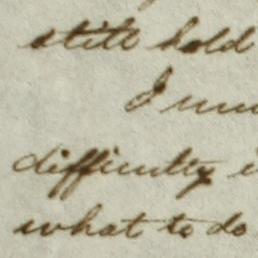 still hold
I
difficulty
what to do